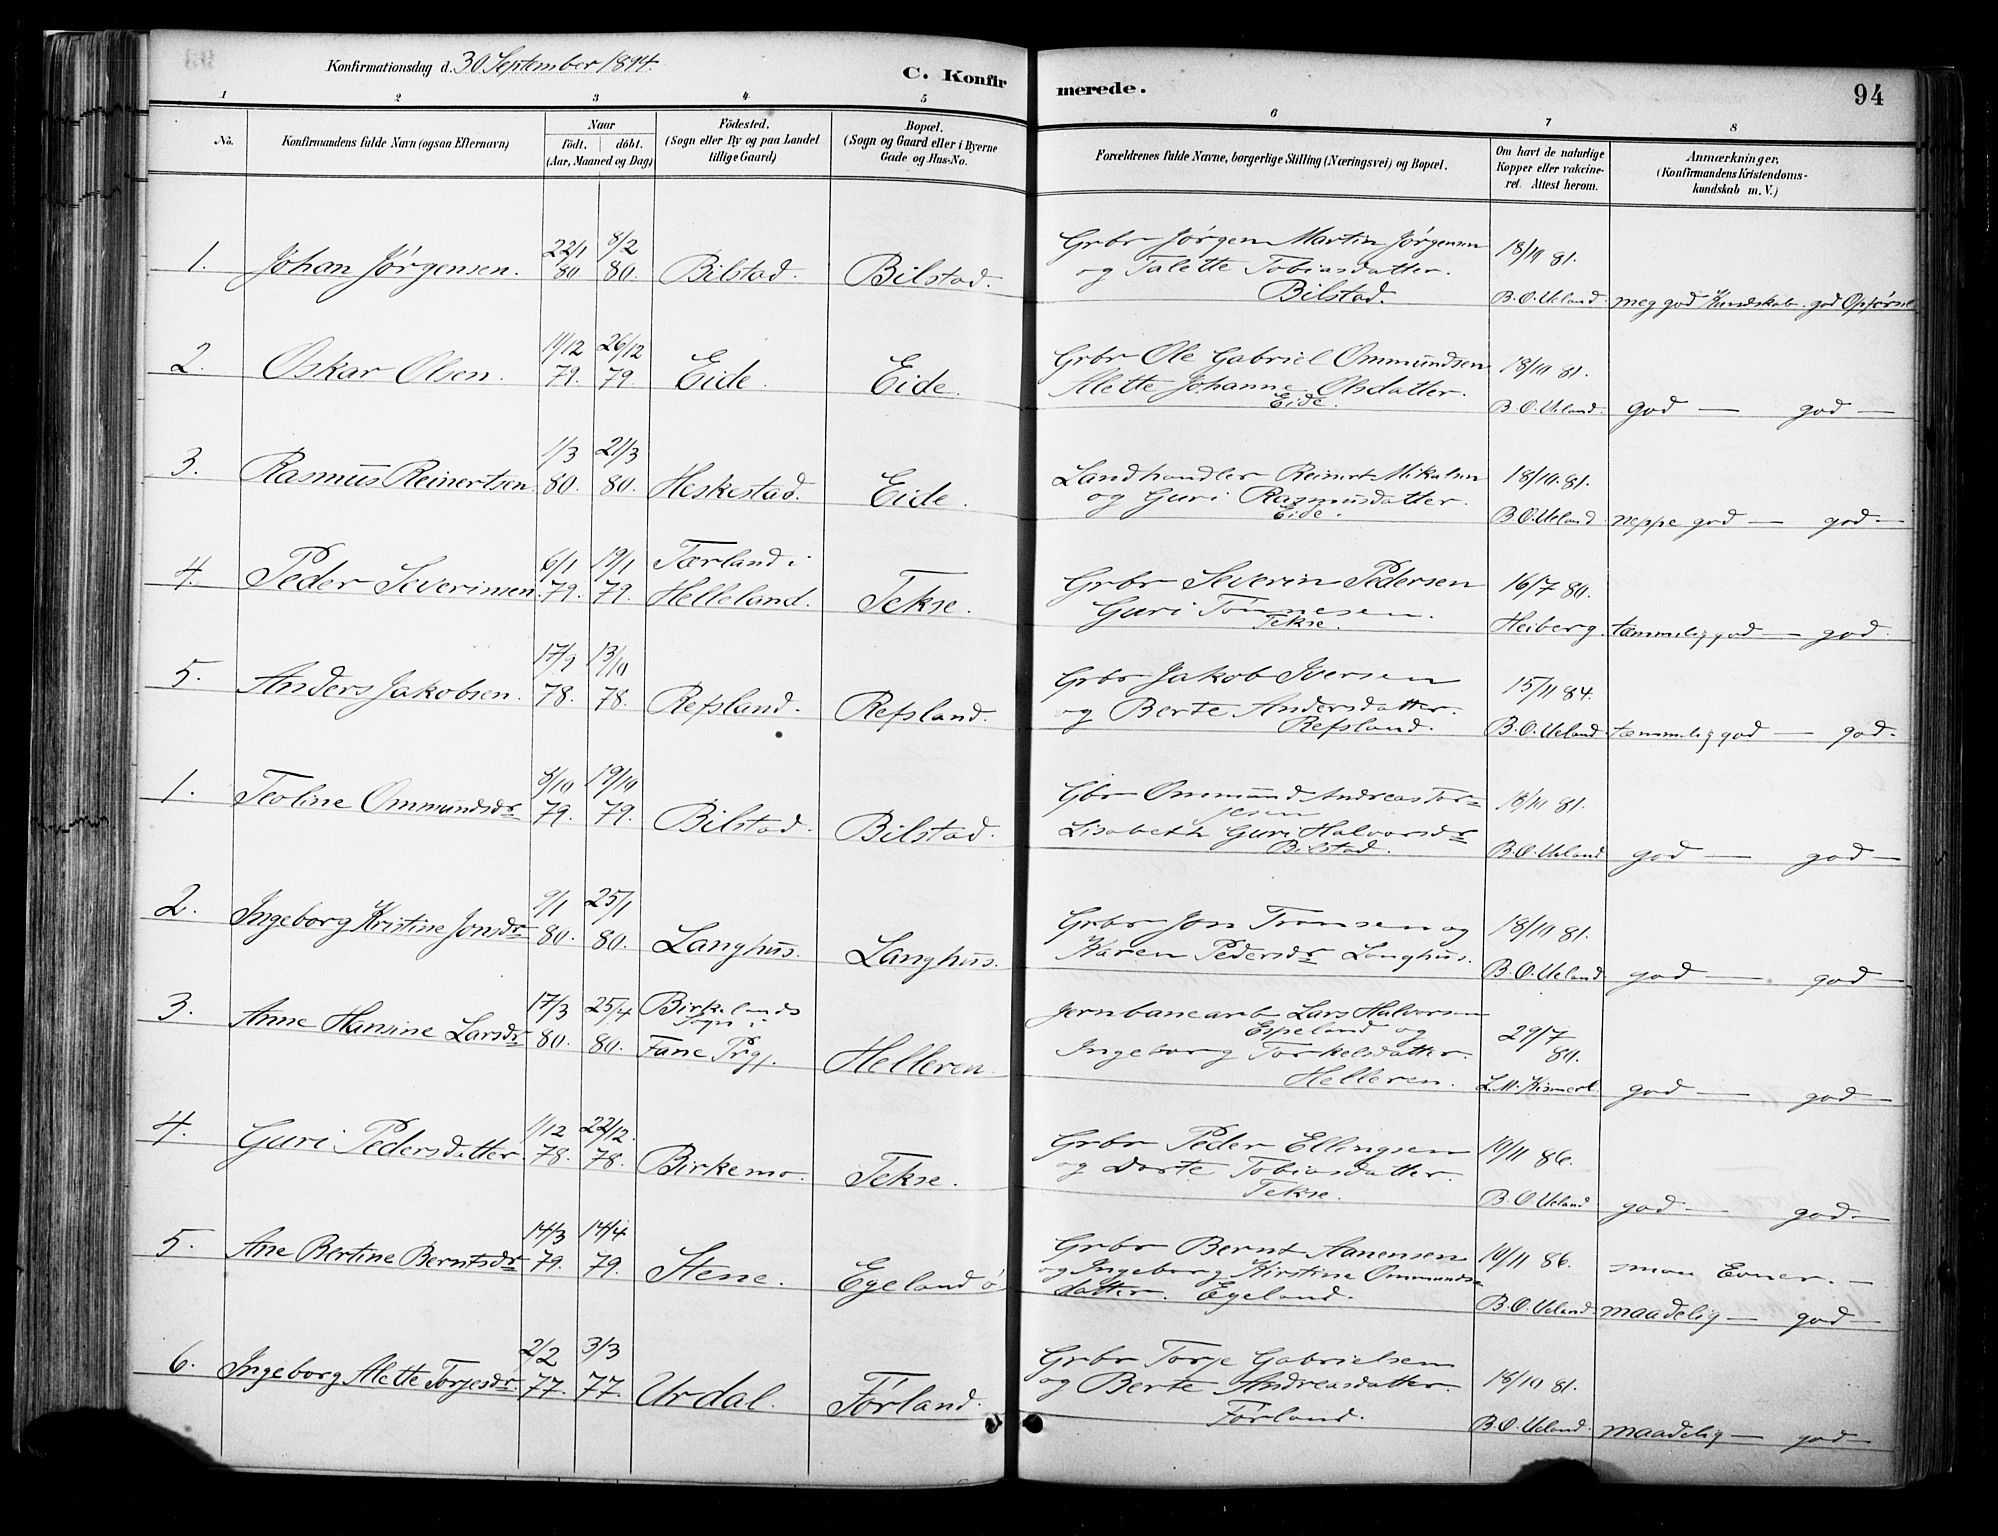 Konfirmationsdag d. 30 September 1894.
C. Konfirmerede.
94
1 2 3 4 5 6 7 8
No.
Konfirmandens fulde Navn (ogsaa Efternavn)
Naar
födt. döbt.
(Aar, Maaned og Dag)
Födested.
(Sogn eller By og paa Landet
tillige Gaard)
Bopæl.
(Sogn og Gaard eller i Byerne
Gade og Hus-No.
Forældrenes fulde Navne, borgerlige Stilling (Næringsvei) og Bopæl.
Om havt de naturlige
Kopper eller vakcine-
ret. Attest herom.
Anmærkninger,
(Konfirmandens Kristendoms-
kundskab m. V.)
1. Johan Jørgensen. 22/1 80 8/2 80. Bilstad. Bilstad.
Grbr Jørgen Martin Jørgensen
og Talette Tobiasdatter.
Bilstad.
18/10 81.
B.O. Ueland. meg god Kundskab. god Opførsel
2. Oskar Olsen. 11/12 79. 26/12 79. Eide. Eide.
Grbr Ole Gabriel Ommundsen
Alette Johanne Olsdatter.
Eide.
18/10 81.
B.O. Ueland. god — god —
3. Rasmus Reinertsen 1/3 80. 21/3 80. Heskestad. Eide.
Landhandler Reinert Mikalsen
og Guri Rasmusdatter.
Eide.
18/10. 81.
B.O. Ueland neppe god — god —
4. Peder Severinsen 6/1 79. 19/1 79. Tærland i Helleland. Tekse.
Grbr Severin Pedersen
Guri Tönnesen.
Tekse.
16/7 80.
Heiberg. tæmmelig god — god.
5. Anders Jakobsen. 17/9 78. 13/10 78. Refsland. Refsland.
Grbr Jakob Iversen
og Berte Andersdatter.
Refsland.
15/11 84.
B.O. Ueland tæmmelig god — god.
1. Teoline Ommundsdr 8/10 79. 19/10 79. Bilstad. Bilstad.
Gbr Ommund Andreas Tor-
jesen
Lisabeth Guri Halvorsdr
Bilstad.
18/11 81.
B.O. Ueland god — god —
2. Ingeborg Kristine Jonsdr 9/1 80. 25/1 80. Langhus. Langhus.
Grbr Jon Tronsen og
Karen Pedersdr Langhus.
18/10 81.
B.O. Ueland god — god —
3. Anne Hansine Larsdr 17/3 80. 25/4 80. Birkelands Sogn i Fane Prgj. Helleren.
Jernbanearb Lars Halvorsen
Espeland og
Ingeborg Torkelsdatter.
Helleren.
29/7
80.
god — god —
4. Guri Pedersdatter 1/12 78. 22/12. 78. Birkemo. Tekse.
Grbr Peder Ellingsen
og Dorte Tobiasdatter.
Tekse.
10/11 86.
B.O. Ueland god — god —
5. Ane Bertine Berntsdr 14/3 79. 14/4 79. Stene. Egeland ö
Grbr Bernt Aanensen
og Ingeborg Kirstine Ommunds-
datter. Egeland.
10/11 86. smaa Evner. —
B.O. Ueland. maadelig — god —
6. Ingeborg Alette Torjesdr. 2/2 77. 3/3 77. Urdal. Förland.
Grbr Torje Gabrielsen
og Berte Andreasdatter.
Förland.
18/10 81.
B.O. Ueland. maadelig — god —